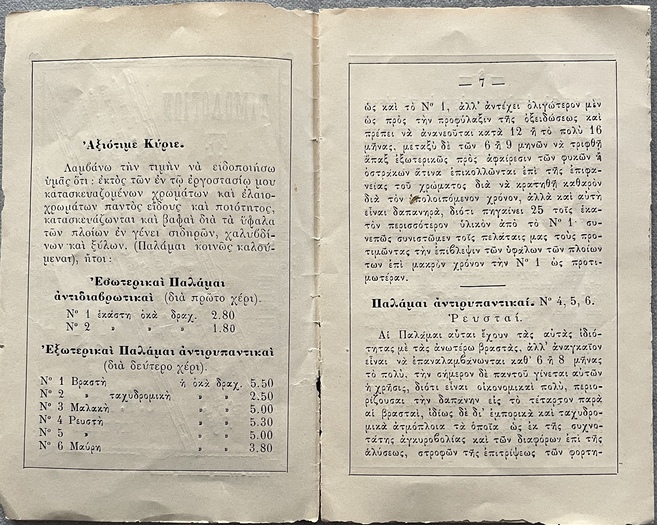 Ἀξιότιμε Κύριε.
Λαμβάνω τὴν τιμὴν νὰ εἰδοποιήσω
ὑμᾶς ὅτι: ἐκτὸς τῶν ἐν τῷ ἐργοστασίῳ μου
κατασκευαζομένων χρωμάτων καὶ ἐλαιο-
χρωμάτων παντὸς εἴδους καὶ ποιότητος,
κατασκευάζονται καὶ βαφαὶ διὰ τὰ ὕφαλα
τῶν πλοίων ἐν γένει σιδηρῶν, χαλυβδί-
νων καὶ ξύλων. (Παλάμαι κοινῶς καλού-
μεναι), ἤτοι:
Ἐσωτερικαὶ Παλάμαι
ἀντιδιαβρωτικαὶ (διὰ πρῶτο χέρι).
Nº 1 ἑκάστη ὀκᾶ δραχ. 2.80
Nº 2 » » » 1.80
Ἐξωτερικαὶ Παλάμαι ἀντιρυπαντικαὶ
(διὰ δεύτερο χέρι).
Nº 1 Βραστὴ ἡ ὀκᾶ δραχ. 5.50
Nº 2 » ταχυδρομικὴ » » 2.50
Nº 3 Μαλακὴ » » 5.00
Nº 4 Ρευστὴ » » 5.30
Nº 5 » » » 5.00
Nº 6 Μαύρη » » 3.80
— 7 —
ὡς καὶ τὸ Nº 1, ἀλλ' ἀντέχει ὀλιγώτερον μὲν
ὡς πρὸς τὴν προφύλαξιν τῆς ὀξειδώσεως καὶ
πρέπει νὰ ἀνανεοῦται κατὰ 12 ἢ τὸ πολὺ 16
μῆνας, μεταξὺ δὲ τῶν 6 ἢ 9 μηνῶν νὰ τριφθῇ
ἅπαξ ἐξωτερικῶς πρὸς ἀφαίρεσιν τῶν φυκῶν ἢ
ὀστράκων ἅτινα ἐπικολλῶνται ἐπὶ τῆς ἐπιφα-
νείας τοῦ χρώματος διὰ νὰ κρατηθῇ καθαρὸν
διὰ τὸν ὑπολοιπόμενον χρόνον, ἀλλὰ καὶ αὐτὴ
εἶναι δαπανηρά, διότι πηγαίνει 25 τοῖς ἑκα-
τὸν περισσότερον ὑλικὸν ἀπὸ τὸ Nº 1· συ-
νεπῶς συνιστῶμεν τοῖς πελάταις μας τοὺς προ-
τιμῶντας τὴν ἐπίβλεψιν τῶν ὑφάλων τῶν πλοίων
των ἐπὶ μακρὸν χρόνον τὴν Nº 1 ὡς προτι-
μωτέραν.
Παλάμαι ἀντιρυπαντικαί. Nº 4, 5, 6.
Ῥευσταί.
Αἱ Παλάμαι αὗται ἔχουν τὰς αὐτὰς ἰδιό-
τητας μὲ τὰς ἀνωτέρω βραστάς, ἀλλ' ἀναγκαῖον
εἶναι νὰ ἐπαναλαμβάνωνται καθ' 6 ἢ 8 μῆνας
τὸ πολύ. τὴν σήμερον δὲ παντοῦ γίνεται αὐτῶν
ἡ χρῆσις, διότι εἶναι οἰκονομικαὶ πολύ, περιο-
ρίζουσαι τὴν δαπάνην εἰς τὸ τέταρτον παρὰ
αἱ βρασταί, ἰδίως δὲ δι' ἐμπορικὰ καὶ ταχυδρο-
μικὰ ἀτμόπλοια τὰ ὁποῖα ὡς ἐκ τῆς συχνο-
τάτης ἀγκυροβολίας καὶ τῶν διαφόρων ἐπὶ τῆς
ἁλύσεως, στροφῶν τῆς ἐπιτρίψεως τῶν φορτη-